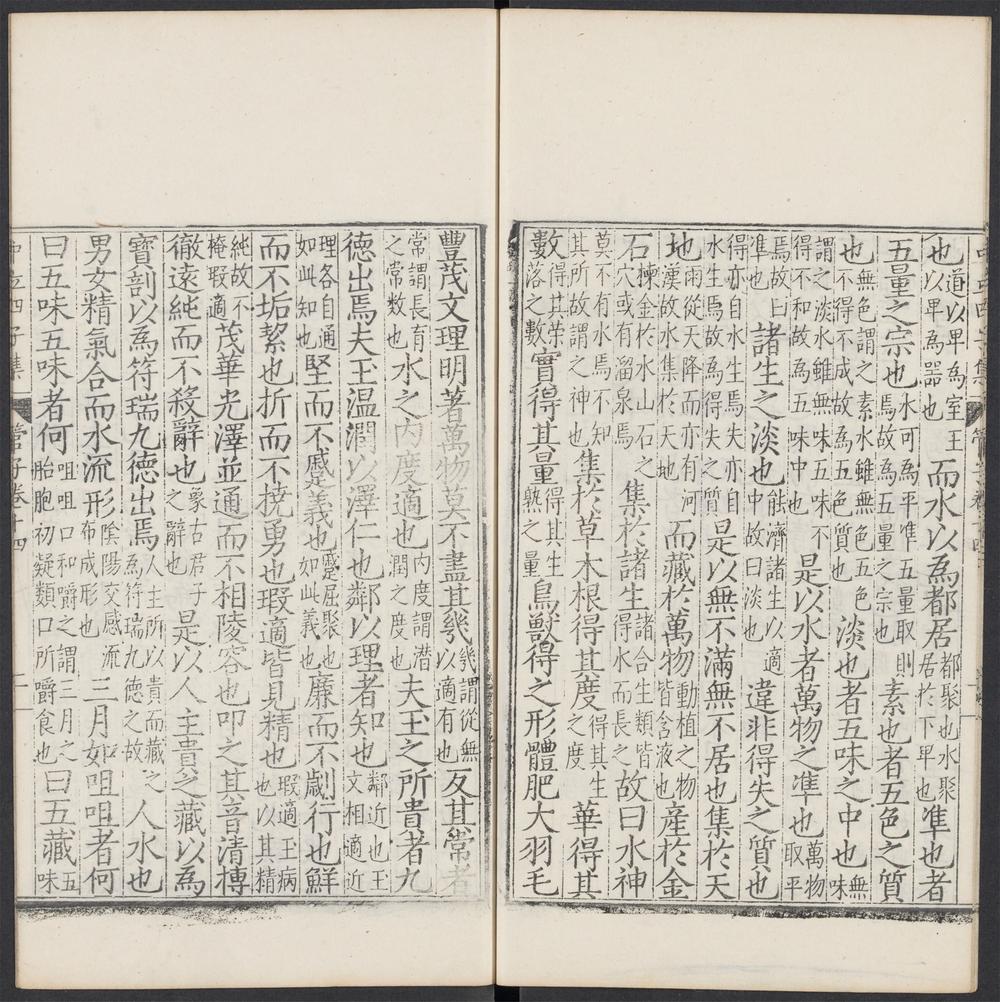 中立四子集
也道以卑為室王也以卑為器也而水以為都居都聚也水聚居於下卑也準也者
五量之宗也水可為平準五量取則焉故為五量之宗也素也者五色之質
也無色謂之素水雖無色五色也不得不成故為五色質也淡也者五味之中也無味
謂之淡水雖無味五味不得不和故為五味中也是以水者萬物之準也萬物取平
焉故曰準也諸生之淡也能濟諸生以適中故曰淡也違非得失之質也
得亦自水生焉失亦自水生焉故為得失之質是以無不滿無不居也集於天
地雨從天降而亦有河漢故水集於天地而藏於萬物動植之物皆含液也產於金
石揀金於水山石之穴或有溜泉焉集於諸生諸合生類皆得水而長之故曰水神
莫不有水焉不知其所故謂之神也集於草木根得其度得其生之度華得其
數得其榮落之數實得其量得其生熟之量鳥獸得之形體肥大羽毛
豐茂文理明著萬物莫不盡其幾幾謂從無以適有也反其常者
常謂長育之常数也水之內度適也內度謂潜潤之度也夫玉之所貴者九
德出焉夫玉温潤以澤仁也鄰以理者知也鄰近也玉文相適近
理各自通如此知也堅而不蹙義也蹙屈聚也如此義也廉而不劌行也鮮
而不垢絜也折而不撓勇也瑕適皆見精也瑕適玉病也以其精
純故不掩瑕適茂華光澤並通而不相陵容也叩之其音清摶
徹遠純而不殺辭也象古君子之辭也是以人主貴之藏以為
寶剖以為符瑞九德出焉人主所以貴而藏之為符瑞九德之故人水也
男女精氣合而水流形陰陽交感流布成形也三月如咀咀者何
曰五味五味者何咀咀口和嚼之謂三月之胎胞初凝類口所嚼食也曰五藏五味
中立四子集
管子卷十四
二